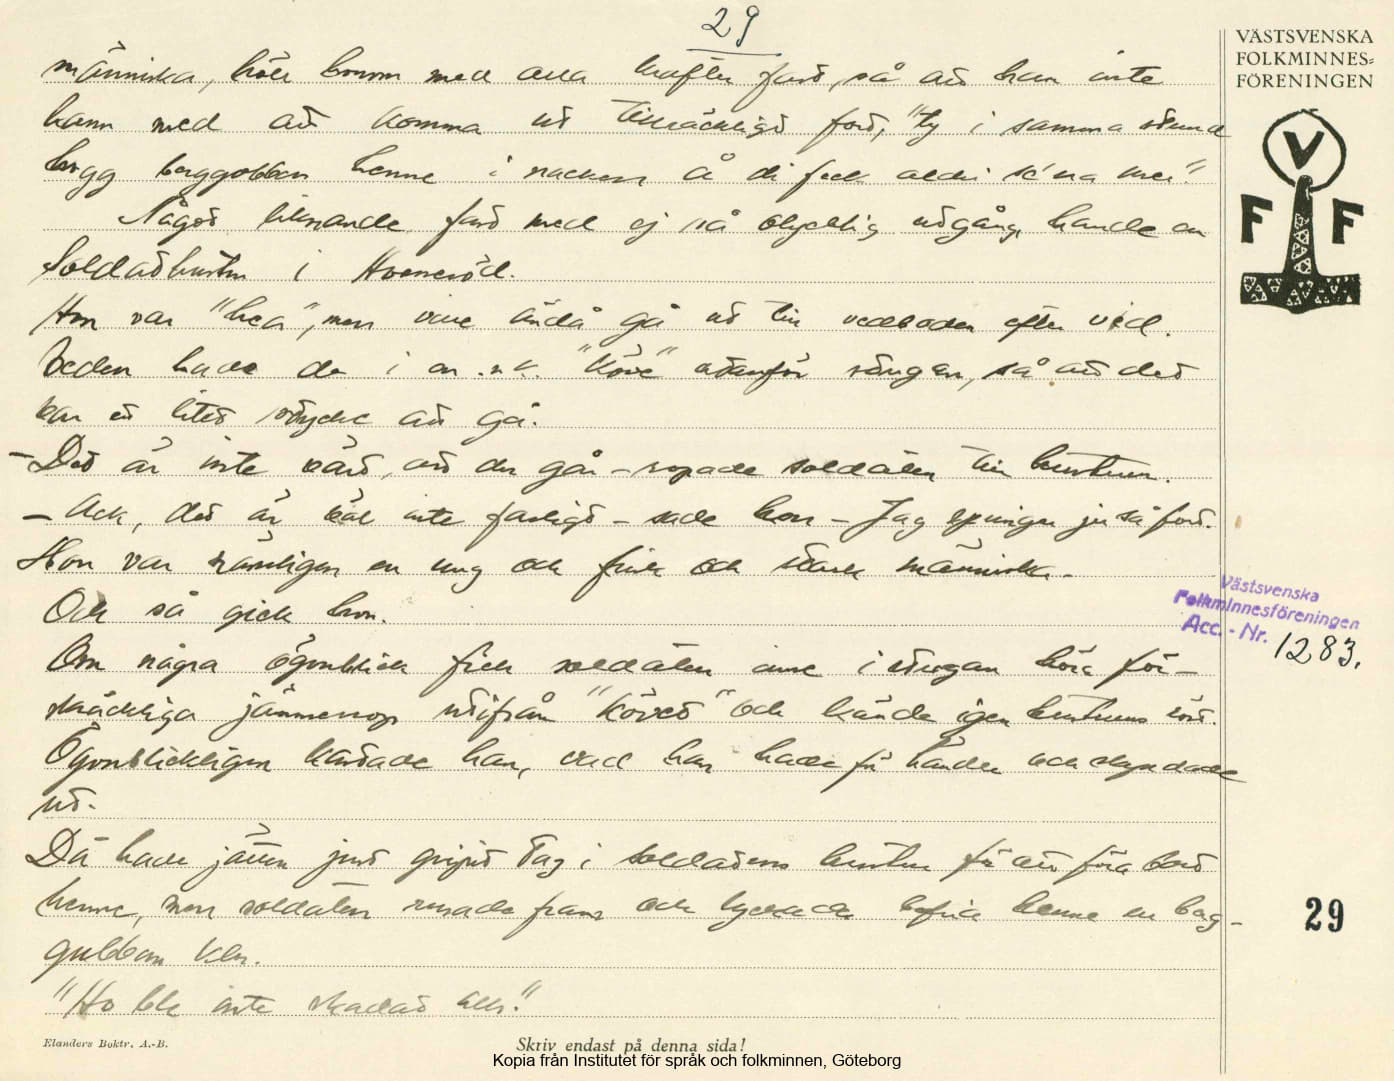 29
människa, höll honom med alla krafter fast, så att han inte
hann med att komma ut tillräckligt fort, "ty i samma stund
högg berggobben henne i nacken å di feck aldri se'na mer."
Något liknande fast med ej så olycklig utgång, hände en
soldathustru i
Hon var "hea", men ville ändå gå ut till vedboden efter ved.
Veden hade de i en s.k. "köve" utanför stugan, så att det
var ett litet stycke att gå.
– Det är inte värt, att du går – ropade soldaten till hustrun.
– Ack, det är väl inte farligt – sade hon – Jag springer ju så fort.
Hon var nämligen en ung och frisk och stark människa.
Och så gick hon.
Om några ögonblick fick soldaten inne i stugan höra för-
skräckliga jämmerrop utifrån "követ" och kände igen hustruns röst.
Ögonblickligen kastade han, vad han hade för händer och skyndade
ut.
Då hade jätten just gripit tag i soldatens hustru för att föra bort
henne, men soldaten rusade fram och lyckades befria henne ur berg-
gubbens klor.
"Ho ble inte skadat alls."
VÄSTSVENSKA
FOLKMINNES=
FÖRENINGEN
V
F F
Västsvenska
Folkminnesföreningen
Acc. - Nr. 1283.
29
Elanders Boktr. A.-B.
Skriv endast på denna sida!
Kopia från Institutet för språk och folkminnen, Göteborg